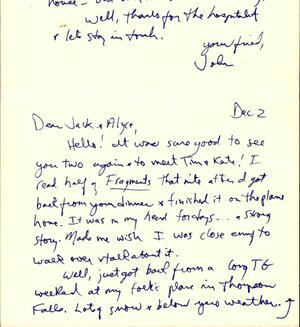 house -
Well, thanks for the hospitality
& let's stay in touch.
your friend,
John
Dec 2
Dear Jack & Alyce,
Hello! It was sure good to see
you two again & to meet Tim & Kate! I
read half of Fragments that nite after I got
back from your dinner & finished it on the plane
home. It was in my head for days... a strong
story. Made me wish I was close enuf to
walk over & talk about it.
Well, just got back from a long TG
weekend at my folk's place in Thompson
Falls. Lots of snow & below zero weather.